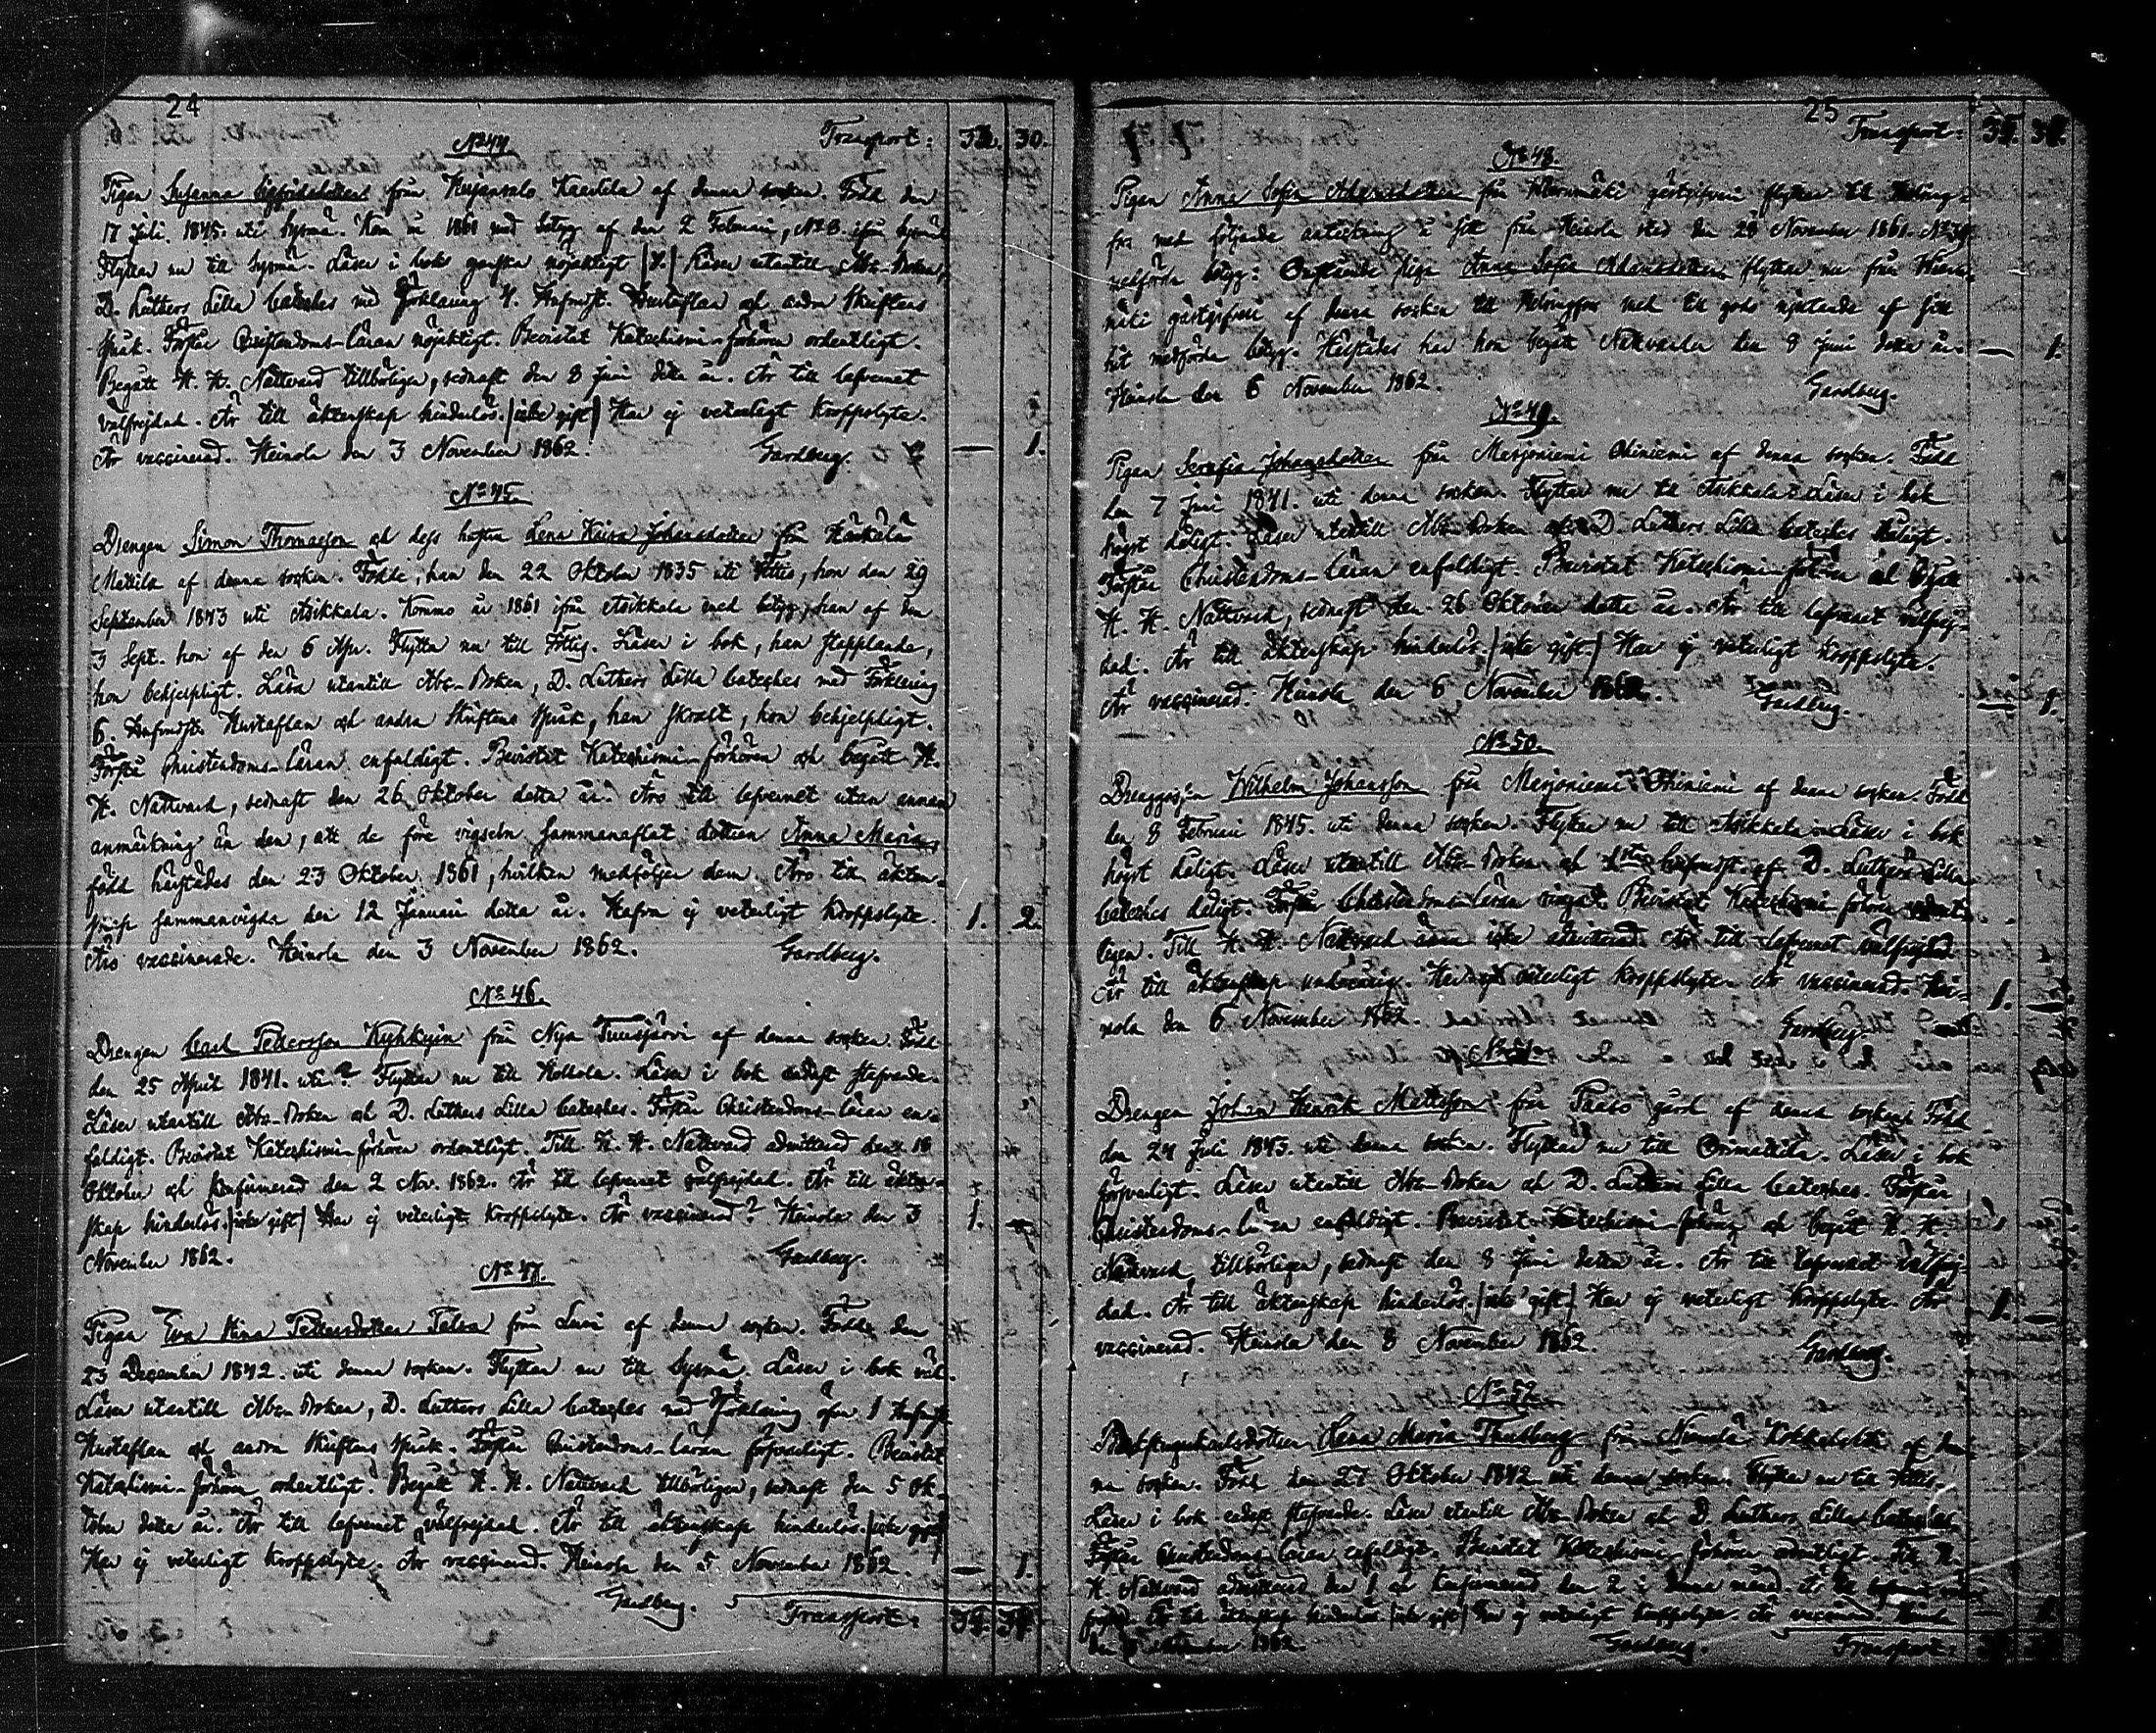 24
Nº 44. Transport: 32. 30.
Pigan Susanna Sigfridsdotter från Kujansalo Kaartila af denna socken. Född den
17 Juli. 1845. uti Sysmä. Kom år 1861 med betyg af den 2 Februari, Nº 3. ifrån Sysmä
Flyttar nu till Sysmä. Läser i bok ganska nöjaktigt Läser utantill Abc-Boken,
D. Luthers Lilla Cateches med Förklaring 4. Hufvudst. Hustaflan och andra Skriftens
språk. Förstår Christendoms-läran nöjaktigt. Bevistat Katechismi-förhören ordentligt.
Begått H. H. Nattvard tillbörligen, sednast den 8 Juni detta år. Är till lefvernet
välfrejdad. Är till äktenskap hinderlös. /icke gift/ Har ej veterligt kroppslyte.
Är vaccinerad. Heinola den 3 November 1862. Gardberg. — 1.
Nº 45.
Drengen Simon Thomasson och dess hustru Lena Kaisa Johansdotter från Härkälä
Mattila af denna socken. Födde, han den 22 Oktober 1835 uti Ittis, hon den 29
September 1843 uti Asikkala. Kommo år 1861 ifrån Asikkala med betyg, han af den
3 Sept. hon af den 6 Apr. Flytta nu till Ittis. Läser i bok, han stapplande,
hon behjelpligt. Läsa utantill Abc-Boken, D. Luthers Lilla Cateches med Förklaring
6. Hufvudst. Hustaflan och andra Skriftens språk, han skralt, hon behjelpligt.
Förstå Christendoms-läran enfaldigt. Bevistat Katechismi-förhören och begått H.
H. Nattvard, sednast den 26 Oktober detta år. Äro till lefvernet utan annan
anmärkning än den, att de före vigseln sammanaflat dottren Anna Maria,
född härstädes den 23 Oktober 1861, hvilken medföljer dem. Äro till äkten-
skap sammanvigda den 12 Januari detta år. Hafva ej veterligt kroppslyte. 1. 2.
Äro vaccinerade. Heinola den 3 November 1862. Gardberg.
Nº 46.
Drengen Carl Pettersson Kyhkyin från Nya Tuusjärvi af denna socken. Född
den 25 April 1841. uti? Flyttar nu till Hollola. Läser i bok endast stafvande.
Läser utantill Abc-Boken och D. Luthers Lilla Cateches. Förstår Christendoms-läran en-
faldigt. Bevistat Katechismi-förhören ordentligt. Till H. H. Nattvard admitterad den 18
Oktober och konfirmerad den 2 Nov. 1862. Är till lefvernet välfrejdad. Är till äkten-
skap hinderlös. /icke gift/ Har ej veterligt kroppslyte. Är vaccinerad? Heinola den 3 1. —
November 1862. Gardberg.
Nº 47.
Pigan Eva Stina Pettersdotter från Lusi af denna socken. Född den
23 December 1842. uti denna socken. Flyttar nu till Sysmä. Läser i bok väl.
Läser utantill Abc-Boken, D. Luthers Lilla Cateches med Förklaring öfver 1 Hufvudst.
Hustaflan och andra Skriftens språk. Förstår Christendoms-läran försvarligt. Bevistat
Katechismi-förhören ordentligt. Begått H. H. Nattvard tillbörligen, sednast den 5 Ok-
tober detta år. Är till lefvernet välfrejdad. Är till äktenskap hinderlös. /icke gift/
Har ej veterligt kroppslyte. Är vaccinerad. Heinola den 5 November 1862. — 1.
Gardberg. Transport:
25
Nº 48. Transport:
Pigan Anna Sofia Adamsdotter från gästgifveri flyttar till Helsing-
fors med följande anteckning å sitt från Heinola stad den 28 November 1861. Nº
medförda betyg: Pigan Anna Sofia Adamsdotter flyttar nu från
mäki gästgifveri af denna socken till Helsingfors med till godo njutande af sitt
hit medförda betyg. Härstädes har hon begått Nattvarden den 8 Juni detta år. — 1.
Heinola den 6 November 1862. Gardberg.
Nº 49.
Pigan Serafia Johansdotter från Marjoniemi Ohiniemi af denna socken. Född
den 7 Juni 1841. uti denna socken. Flyttar nu till Asikkala. Läser i bok
högst dåligt. Läser utantill Abc-Boken och D. Luthers Lilla Cateches dåligt.
Förstår Christendoms-läran enfaldigt. Bevistat Katechismi-förhören och begått
H. H. Nattvard, sednast den 26 Oktober detta år. Är till lefvernet välfrej-
dad. Är till äktenskap hinderlös. /icke gift./ Har ej veterligt kroppslyte.
Är vaccinerad. Heinola den 6 November 1862. Gardberg. — 1.
Nº 50.
Drenggossen Wilhelm Johansson från Marjoniemi Ohiniemi af denna socken. Född
den 8 Februari 1845. uti denna socken. Flyttar nu till Asikkala. Läser i bok
högst dåligt. Läser utantill Abc-Boken och hufvudst. af D. Luthers Lilla
Cateches dåligt. Förstår Christendoms-läran ringa. Bevistat Katechismi-förhören ordent-
ligen. Till H. H. Nattvard ännu icke admitterad. Är till lefvernet välfrejdad.
Är till äktenskap underårig. Har ej veterligt kroppslyte. Är vaccinerad. Hei- 1. —
nola den 6 November 1862. Gardberg.
Nº 51.
Drengen Johan Henrik Mattsson från Paaso gård af denna socken. Född
den 24 Juli 1843. uti denna socken. Flyttar nu till Orimattila. Läser i bok
försvarligt. Läser utantill Abc-Boken och D. Luthers Lilla Cateches. Förstår
Christendoms-läran enfaldigt. Bevistat Katechismi-förhören och begått H. H.
Nattvard tillbörligen, sednast den 8 Juni detta år. Är till lefvernet välfrej-
dad. Är till äktenskap hinderlös. /icke gift/ Har ej veterligt kroppslyte. Är 1. —
vaccinerad. Heinola den 8 November 1862. Gardberg.
Nº 52.
Maria från af den-
na socken. Född den 27 Oktober 1842 uti denna socken. Flyttar nu till Ittis.
Läser i bok endast stafvande. Läser utantill Abc-Boken och D. Luthers Lilla Cateches.
Förstår Christendoms-läran enfaldigt. Bevistat Katechismi-förhören ordentligt. Till H.
H. Nattvard admitterad den 1 och konfirmerad den 2 i denna månad. Är till lefvernet
Är till äktenskap hinderlös /icke gift/ Har ej veterligt kroppslyte. Är vaccinerad. Heinola
den November 1862. Gardberg. Transport: